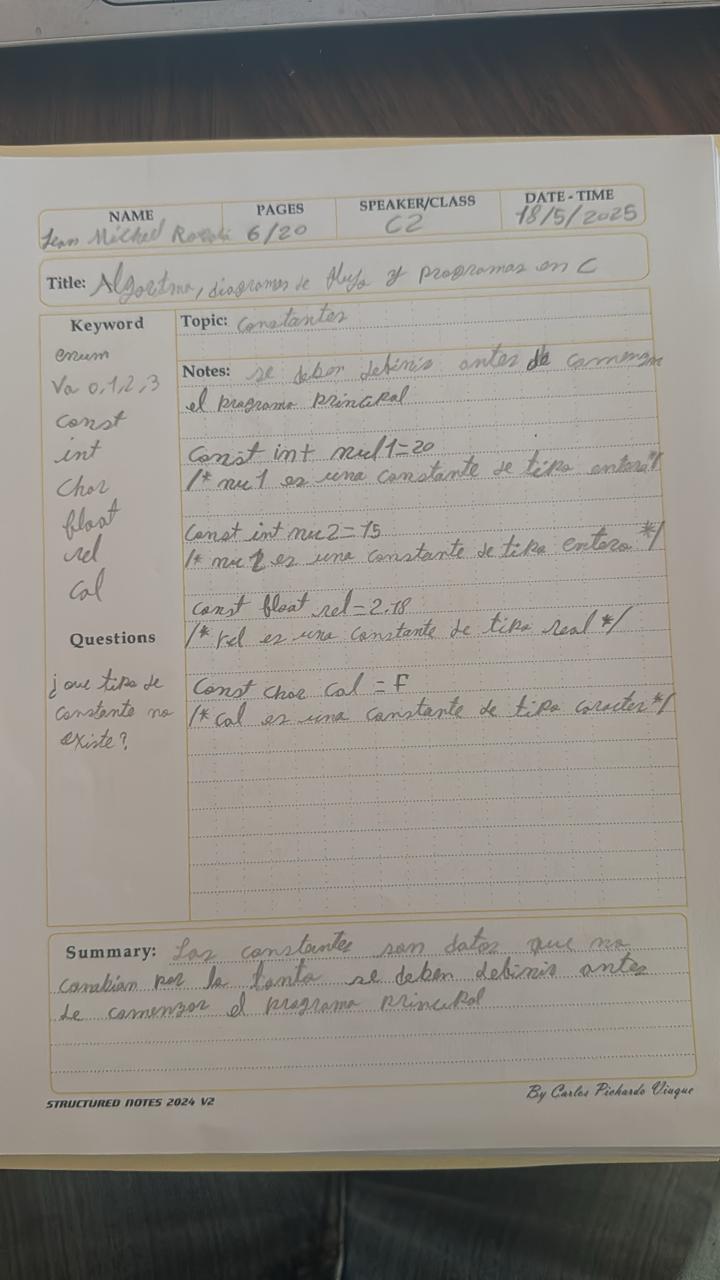 NAME PAGES SPEAKER/CLASS DATE-TIME
Jean Michel 6/20 C2 18/5/2025
Title: Algoritmo, diagramas de flujo y programas en C
Keyword
enum
Va 0,1,2,3
const
int
Char
float
rel
Cal
Questions
¿que tipo de
constante no
existe?
Topic: Constantes
Notes: se deben definir antes de comenzar
el programa principal
Const int nu1=20
/* nu1 es una constante de tipo entero */
Const int nu2=15
/* nu2 es una constante de tipo entero */
const float rel=2.18
/* rel es una constante de tipo real */
Const Char Cal = F
/* Cal es una constante de tipo caracter */
Summary: Las constantes son datos que no
canabian por lo tanto se deben definir antes
de comenzar el programa principal
STRUCTURED NOTES 2024 V2
By Carlos Pichardo Viuque